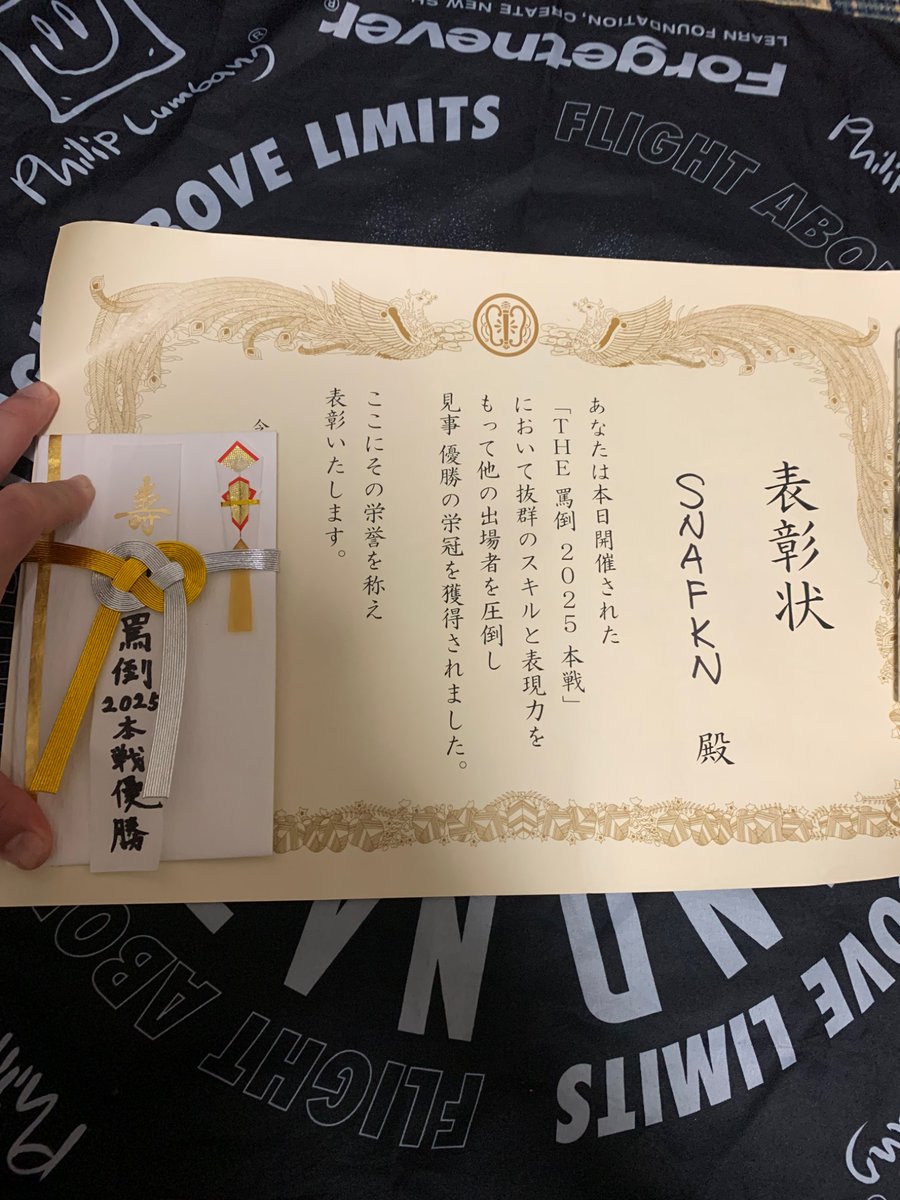 Philip Lumbang®
Forgetnever®
LEARN FOUNDATION, CREATE NEW
ABOVE LIMITS
FLIGHT ABOVE
表彰状
SNAFKN 殿
あなたは本日開催された
「THE 罵倒 2025 本戦」
において抜群のスキルと表現力を
もって他の出場者を圧倒し
見事 優勝の栄冠を獲得されました。
ここにその栄誉を称え
表彰いたします。
寿
罵倒2025本戦優勝
FLIGHT ABO
OVE LIMITS